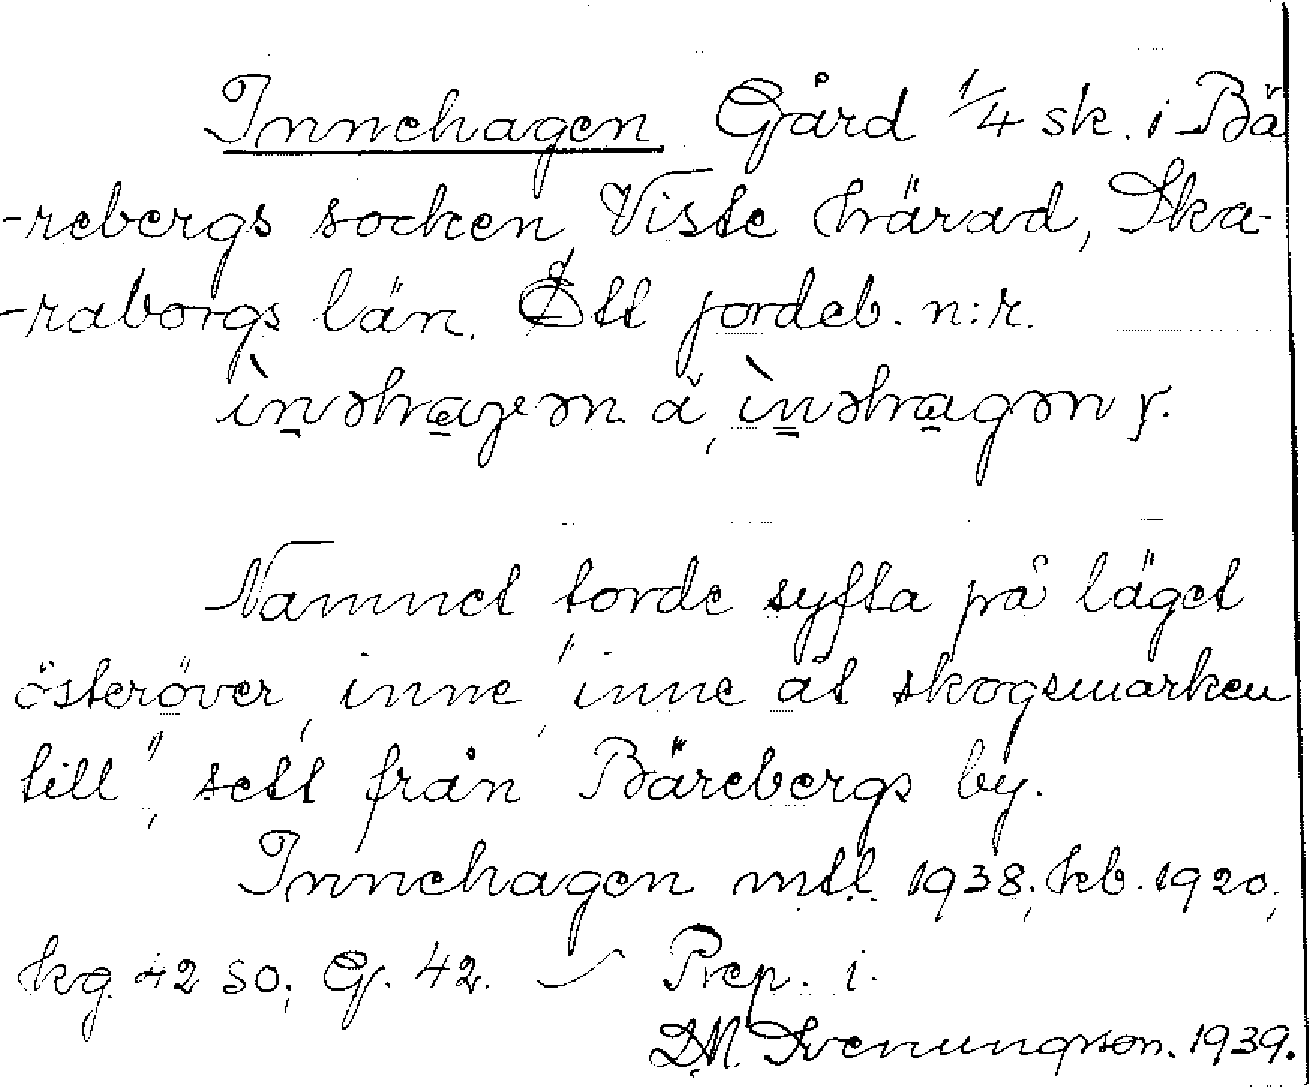 Innehagen Gård 1/4 sk. i Bä
-rebergs socken, Viste härad, Ska-
-raborgs län. Ett jordeb. n:r.
ìnəhagən ä, ìnəhagən y.
Namnet torde syfta på läget
österöver, inne, "inne åt skogsmarken
till", sett från Bärebergs by.
Innehagen mtl. 1938; kb. 1920;
kg. 42 SO; G. 42. Prep. i.
D.N. Svenungsson. 1939.